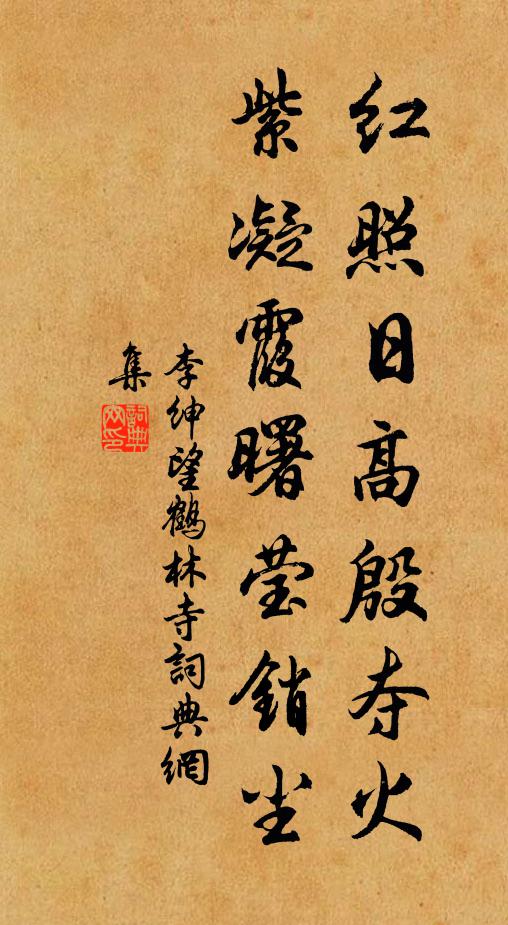 红照日高殷夺火
紫凝霞曙莹销尘
李绅望鹤林寺詞典網
集
詞典网印